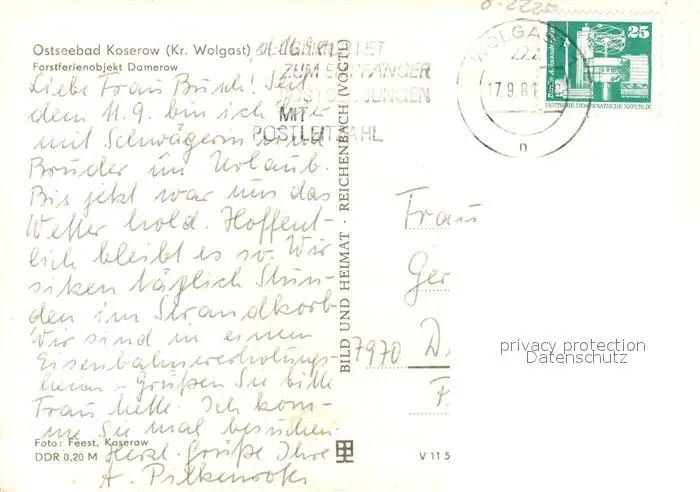 Ostseebad Koserow (Kr. Wolgast)
Forstferienobjekt Damerow
d. 16.9.81
Liebe Frau Busch! Seit
dem 11.9. bin ich hier
mit Schwägerin und
Bruder im Urlaub.
Bis jetzt war uns das
Wetter hold. Hoffent-
lich bleibt es so. Wir
sitzen täglich Stun-
den im Strandkorb
Wir sind in einem
Eisenbahnererholungs-
heim - Grüßen Sie bitte
Frau Ich kom-
me Sie mal besuchen.
Herzl. Grüße Ihre
A.
Foto: Feest, Koserow
DDR 0,20 M
BILD UND HEIMAT · REICHENBACH (VOGTL)
V 11 5
ZUM EMPFÄNGER
POSTSENDUNGEN
MIT
POSTLEITZAHL
WOLGAST
222
17.9.81
n
25
Berlin, Alexanderplatz
DEUTSCHE DEMOKRATISCHE REPUBLIK
Frau
Ger
7970 D
privacy protection
Datenschutz